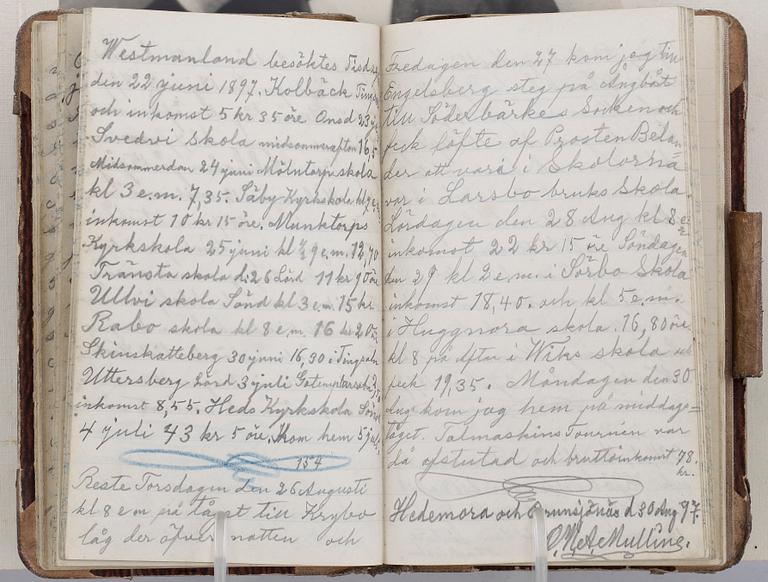 Westmanland besöktes Tisda
den 22 juni 1897. Kolbäck Tings
och inkomst 5 kr 35 öre Onsd 23 ju
Svedvi skola midsommarafton 16,5
Midsommardan 24 juni Mölntorp skola
kl 3 e.m. 7,35. Säby Kyrkskola kl 9 e.
inkomst 10 kr 15 öre. Munktorps
Kyrkskola 25 juni kl ½ 9 e.m. 12,70
Tränsta skola d: 26 Lörd 11 kr 90 öre
Ullvi skola Sönd kl 3 e.m. 15 kr.
Rabo skola kl 8 e.m. 16 kr 20 ör
Skinskatteberg 30 juni 16,30 i Tingsaln
Uttersberg Lörd 3 juli
inkomst 8,55. Heds Kyrkskola Sönd
4 juli 43 kr 5 öre. Kom hem 5 jul
154
Reste Torsdagen den 26 Augusti
kl 8 e m på tåget till Krybo
låg der öfver natten och
Fredagen den 27 kom jag till
Engelsberg steg på Ångbåt
till Söderbärkes Socken och
feck löfte af Prosten Belan
der att vara i Skolorna
var i Larsbo bruks Skola
Lördagen den 28 Aug kl 8 e
inkomst 22 kr 15 öre Söndagen
den 29 kl 2 e.m. i Sörbo Skola
inkomst 18,40. och kl 5 e.m.
i Huggnora skola. 16,80 öre
kl 8 på aftn i Wiks skola och
feck 19,35. Måndagen den 30
Aug kom jag hem på middags=
tåget. Talmaskins Tournén var
då afslutad och bruttoinkomst 78.
kr.
Hedemora och Brunsjönäs d 30 Aug 97.